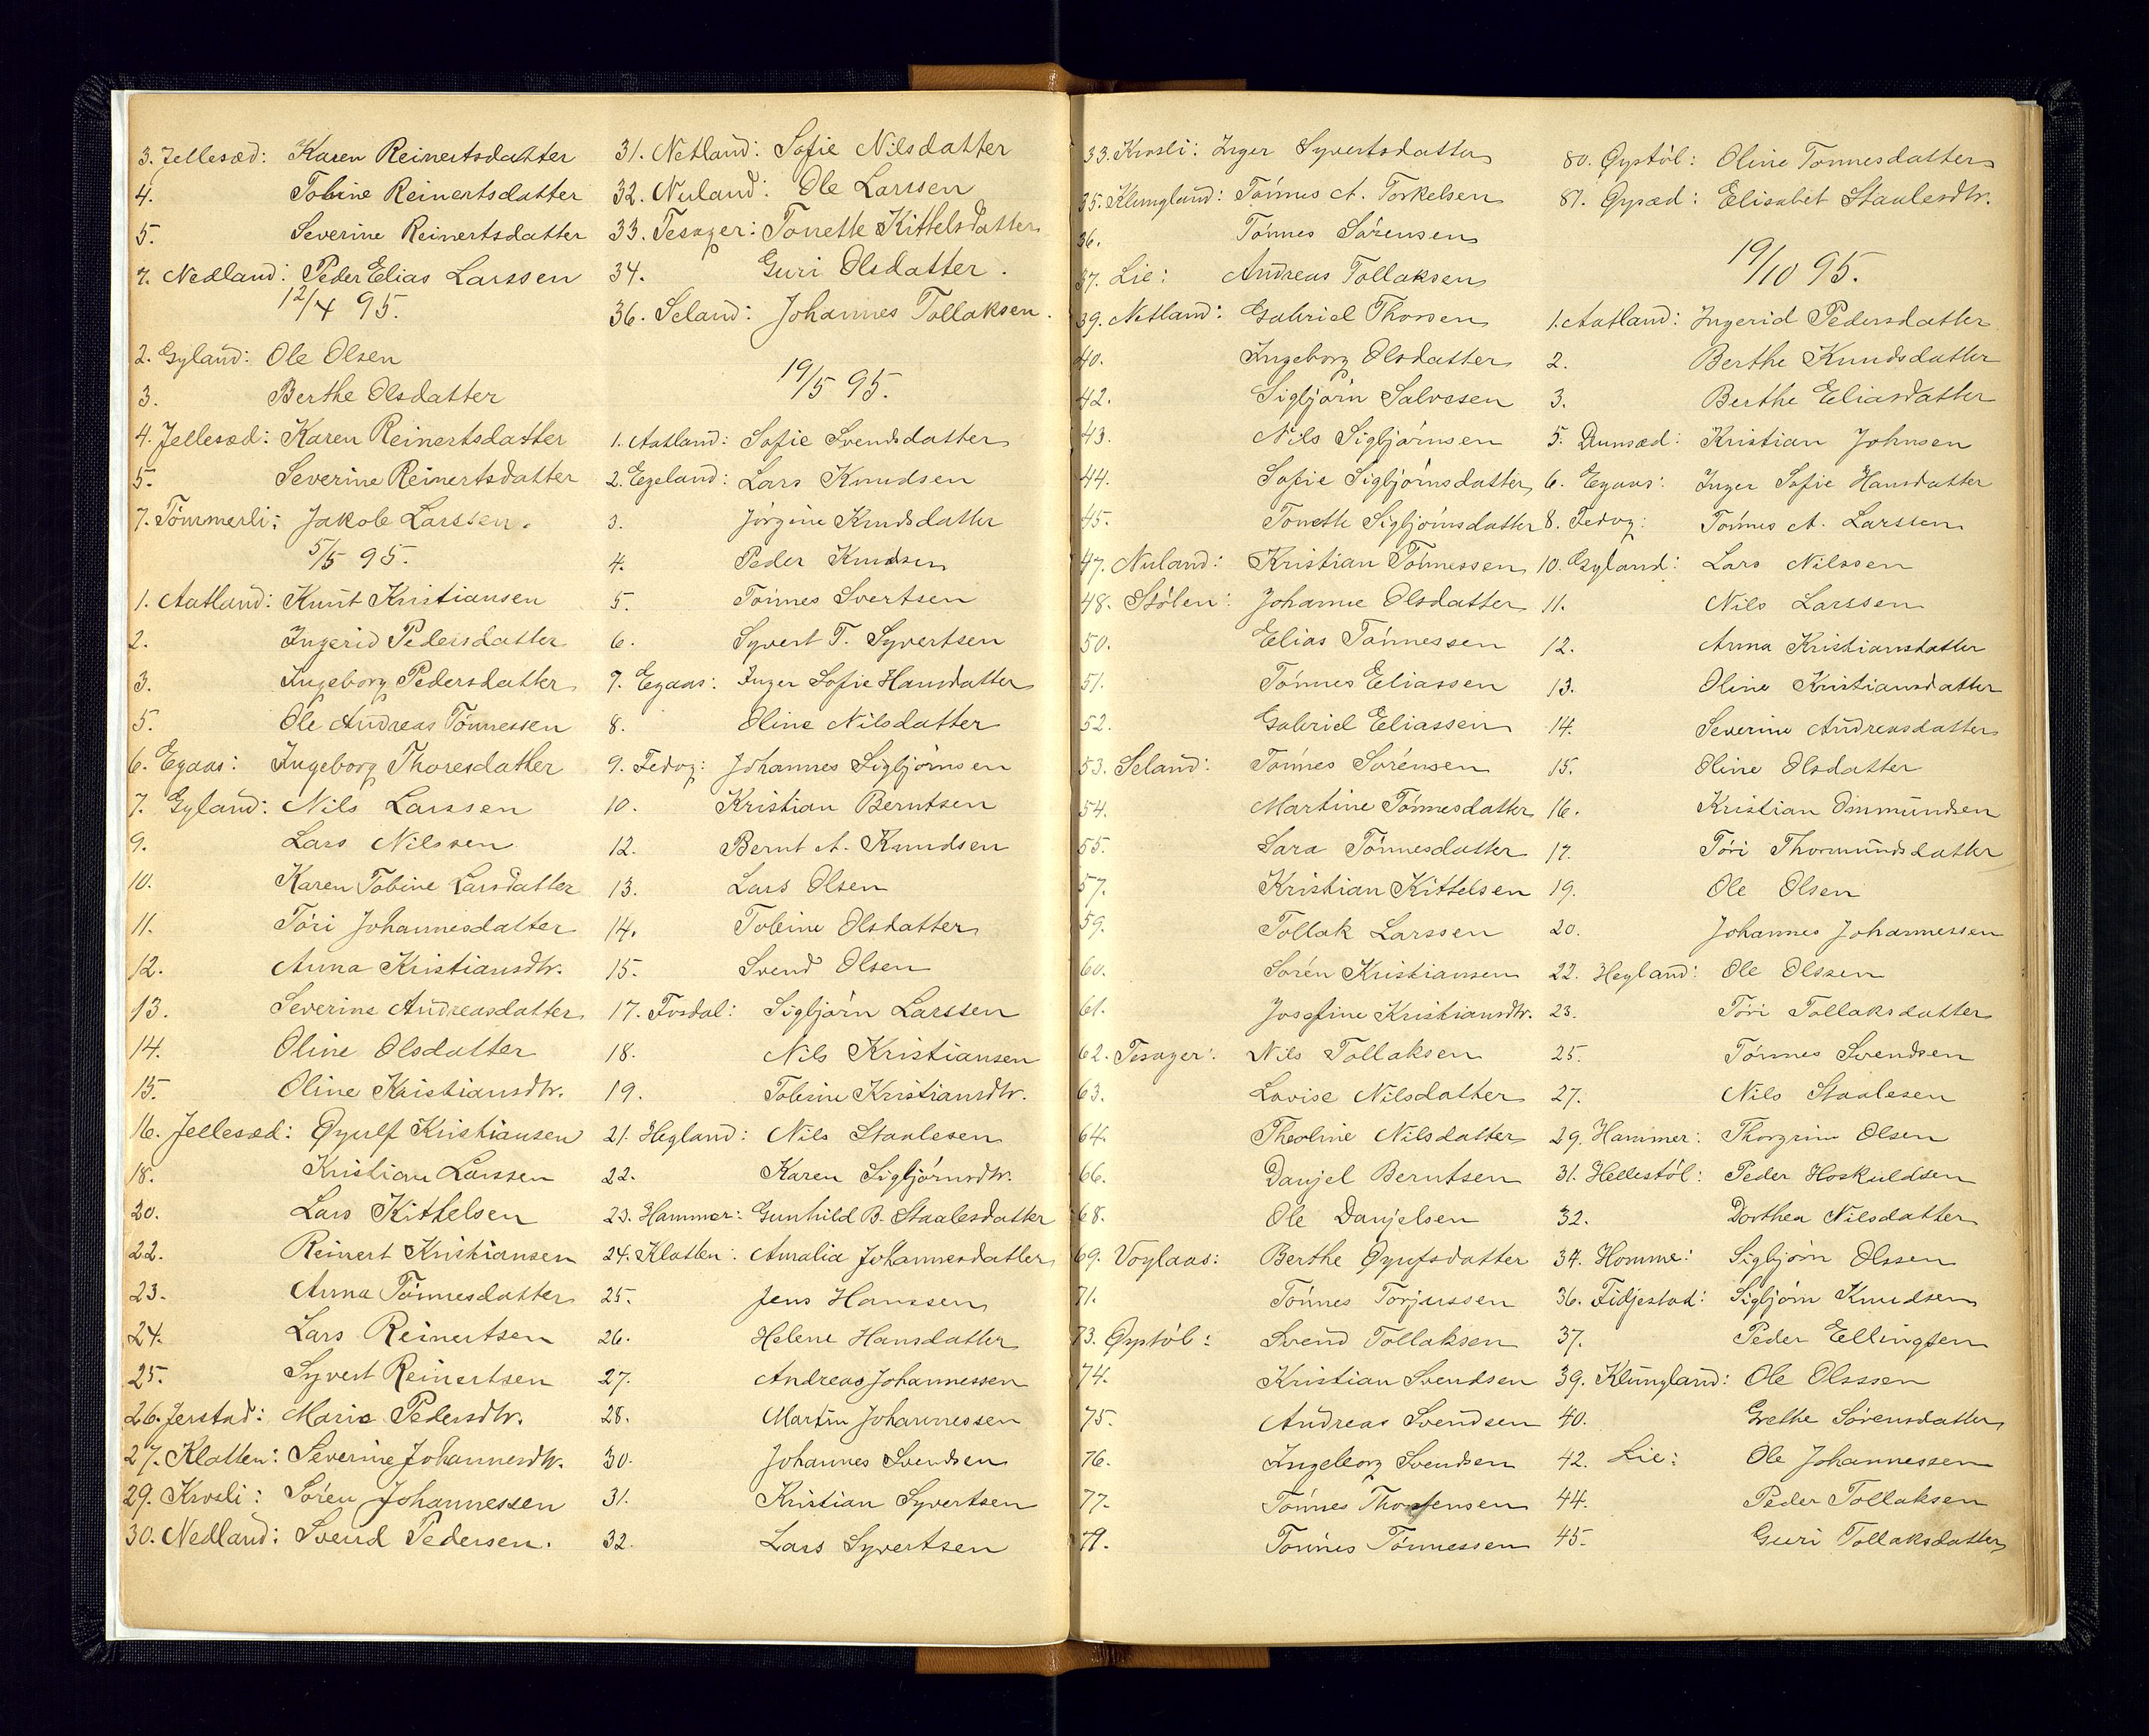 3. Jellesæd: Karen Reinertsdatter
4. Tobine Reinertsdatter
5. Severine Reinertsdatter
7. Nedland: Peder Elias Larssen
12/4 95.
2. Gyland: Ole Olsen
3. Berthe Olsdatter
4. Jellesæd: Karen Reinertsdatter
5. Severine Reinertsdatter
7. Tömmerli: Jakob Larssen.
5/5 95.
1. Aatland: Knut Kristiansen
2. Ingerid Pedersdatter
3. Ingeborg Pedersdatter
5. Ole Andreas Tönnessen
6. Egaas: Ingeborg Thoresdatter
7. Gyland: Nils Larssen
9. Lars Nilssen
10. Karen Tobine Larsdatter
11. Töri Johannesdatter
12. Anna Kristiansdtr.
13. Severine Andreasdatter
14. Oline Olsdatter
15. Oline Kristiansdtr.
16. Jellesæd: Øyulf Kristiansen
18. Kristian Larssen
20. Lars Kittelsen
22. Reinert Kristiansen
23. Anna Tönnesdatter
24. Lars Reinertsen
25. Syvert Reinertsen
26. Jerstad: Marie Pedersdtr.
27. Klatten: Severine Johannesdtr.
29. Krosli: Sören Johannessen
30. Nedland: Svend Pedersen.
31. Netland: Sofie Nilsdatter
32. Nuland: Ole Larssen
33. Tesager: Tonette Kittelsdatter
34. Guri Olsdatter.
36. Seland: Johannes Tollaksen.
19/5 95.
1. Aatland: Sofie Svendsdatter
2. Egeland: Lars Knudsen
3. Jörgine Knudsdatter
4. Peder Knudsen
5. Tönnes Svertsen
6. Syvert T. Syvertsen
7. Egaas: Inger Sofie Hansdatter
8. Oline Nilsdatter
9. Fedog: Johannes Sigbjörnsen
10. Kristian Berntsen
12. Bernt A. Knudsen
13. Lars Olsen
14. Tobine Olsdatter
15. Svend Olsen
17. Fosdal: Sigbjörn Larssen
18. Nils Kristiansen
19. Tobine Kristiansdtr.
21. Hegland: Nils Staalesen
22. Karen Sigbjörnsdtr.
23. Hammer: Gunhild B. Staalesdatter
24. Klatten: Amalia Johannesdatter
25. Jens Hanssen
26. Helene Hansdatter
27. Andreas Johannessen
28. Martin Johannessen
30. Johannes Svendsen
31. Kristian Syvertsen
32. Lars Syvertsen
33. Krosli: Inger Syvertsdatter
35. Klungland: Tönnes A. Torkelsen
36. Tönnes Sörensen
37. Lie: Andreas Tollaksen
39. Netland: Gabriel Thorsen
40. Ingeborg Olsdatter
42. Sigbjörn Salvesen
43. Nils Sigbjörnsen
44. Sofie Sigbjörnsdatter
45. Tonette Sigbjörnsdatter
47. Nuland: Kristian Tönnessen
48. Stölen: Johanne Olsdatter
50. Elias Tönnessen
51. Tönnes Eliassen
52. Gabriel Eliassen
53. Seland: Tönnes Sörensen
54. Martine Tönnesdatter
55. Sara Tönnesdatter
57. Kristian Kittelsen
59. Tollak Larssen
60. Sören Kristiansen
61. Josefine Kristiansdtr.
62. Tesager: Nils Tollaksen
63. Lovise Nilsdatter
64. Theoline Nilsdatter
66. Danjel Berntsen
68. Ole Danjelsen
69. Voglaas: Berthe Øyufsdatter
71. Tönnes Torjussen
73. Øystöl: Svend Tollaksen
74. Kristian Svendsen
75. Andreas Svendsen
76. Ingeborg Svendsen
77. Tönnes
79. Tönnes Tönnessen
80. Øystöl: Oline Tönnesdatter
81. Elisabet Staalesdtr.
19/10 95.
1. Aatland: Ingerid Pedersdatter
2. Berthe Knudsdatter
3. Berthe Eliasdatter
5. Dunsæd: Kristian Johnsen
6. Egaas: Inger Sofie Hansdatter
8. Fedog: Tönnes A. Larssen
10. Gyland: Lars Nilssen
11. Nils Larssen
12. Anna Kristiansdatter
13. Oline Kristiansdatter
14. Severine Andreasdatter
15. Oline Olsdatter
16. Kristian Ommundsen
17. Töri Thormundsdatter
19. Ole Olsen
20. Johannes Johannessen
22. Hegland: Ole Olssen
23. Töri Tollaksdatter
25. Tönnes Svendsen
27. Nils Staalesen
29. Hammer: Thorgrim Olsen
31. Hellestöl: Peder Hoskuldsen
32. Dorthea Nilsdatter
34. Homme: Sigbjörn Olssen
36. Fidjestad: Sigbjörn Knudsen
37. Peder Ellingsen
39. Klungland: Ole Olsssen
40. Grethe Sörensdatter
42. Lie: Ole Johannessen
44. Peder Tollaksen
45. Guri Tollaksdatter